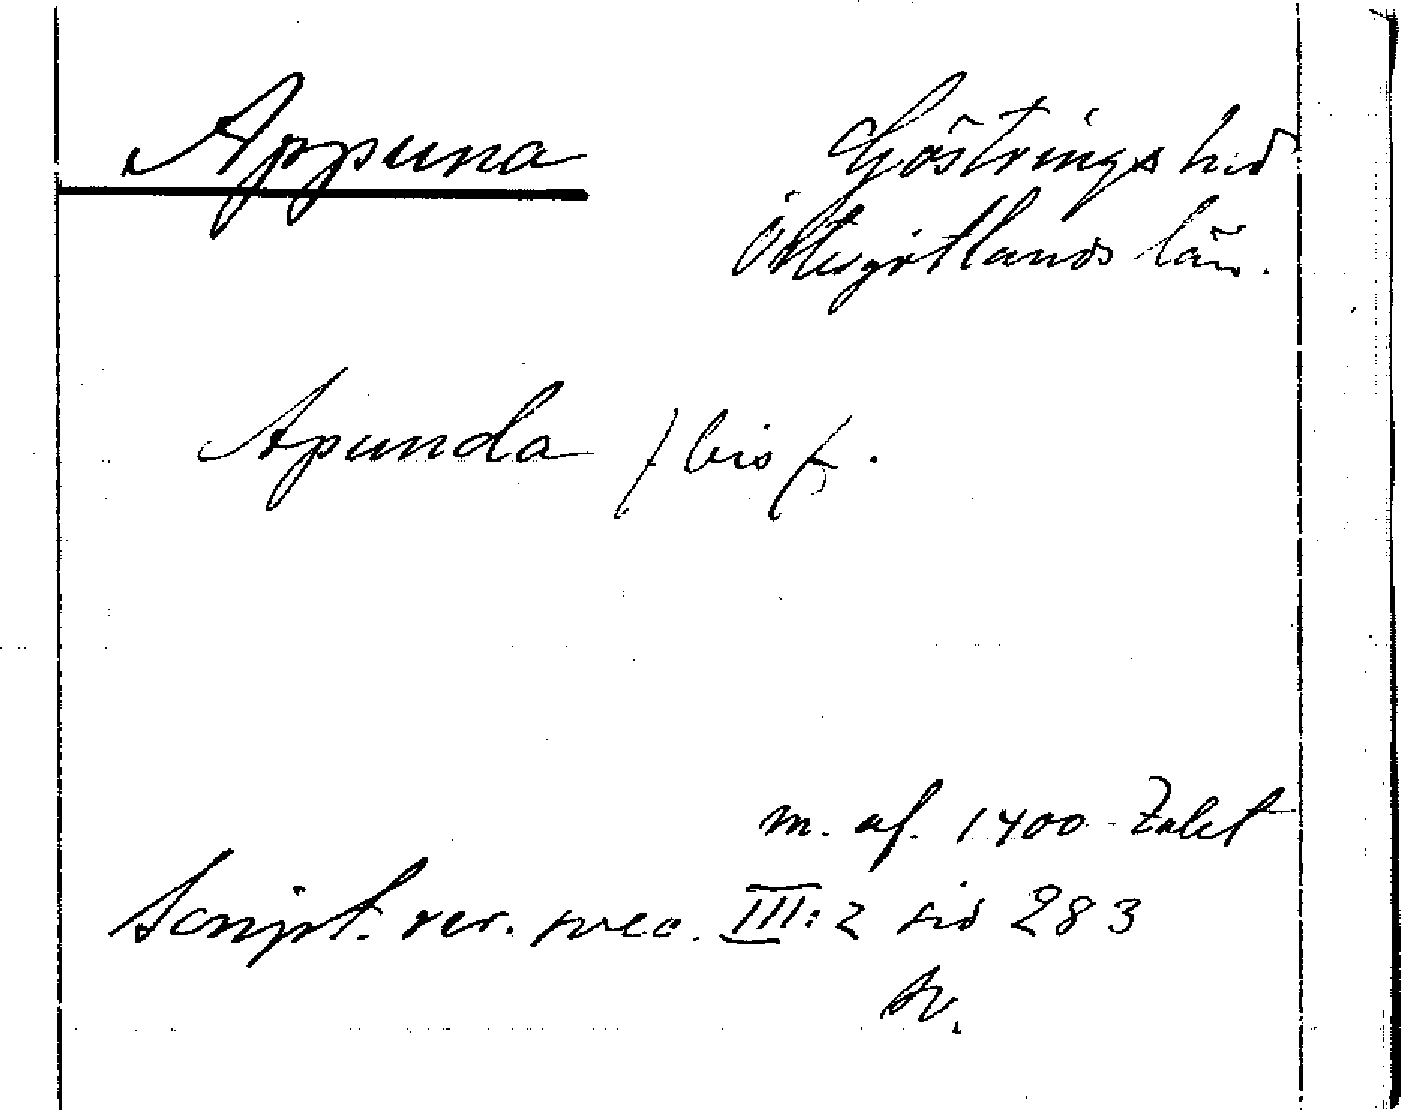 Appuna
Göstrings hd
Östergötlands län.
Apunda /bis/.
m. af. 1400-talet
Script. rer. svec. III:2 sid 283